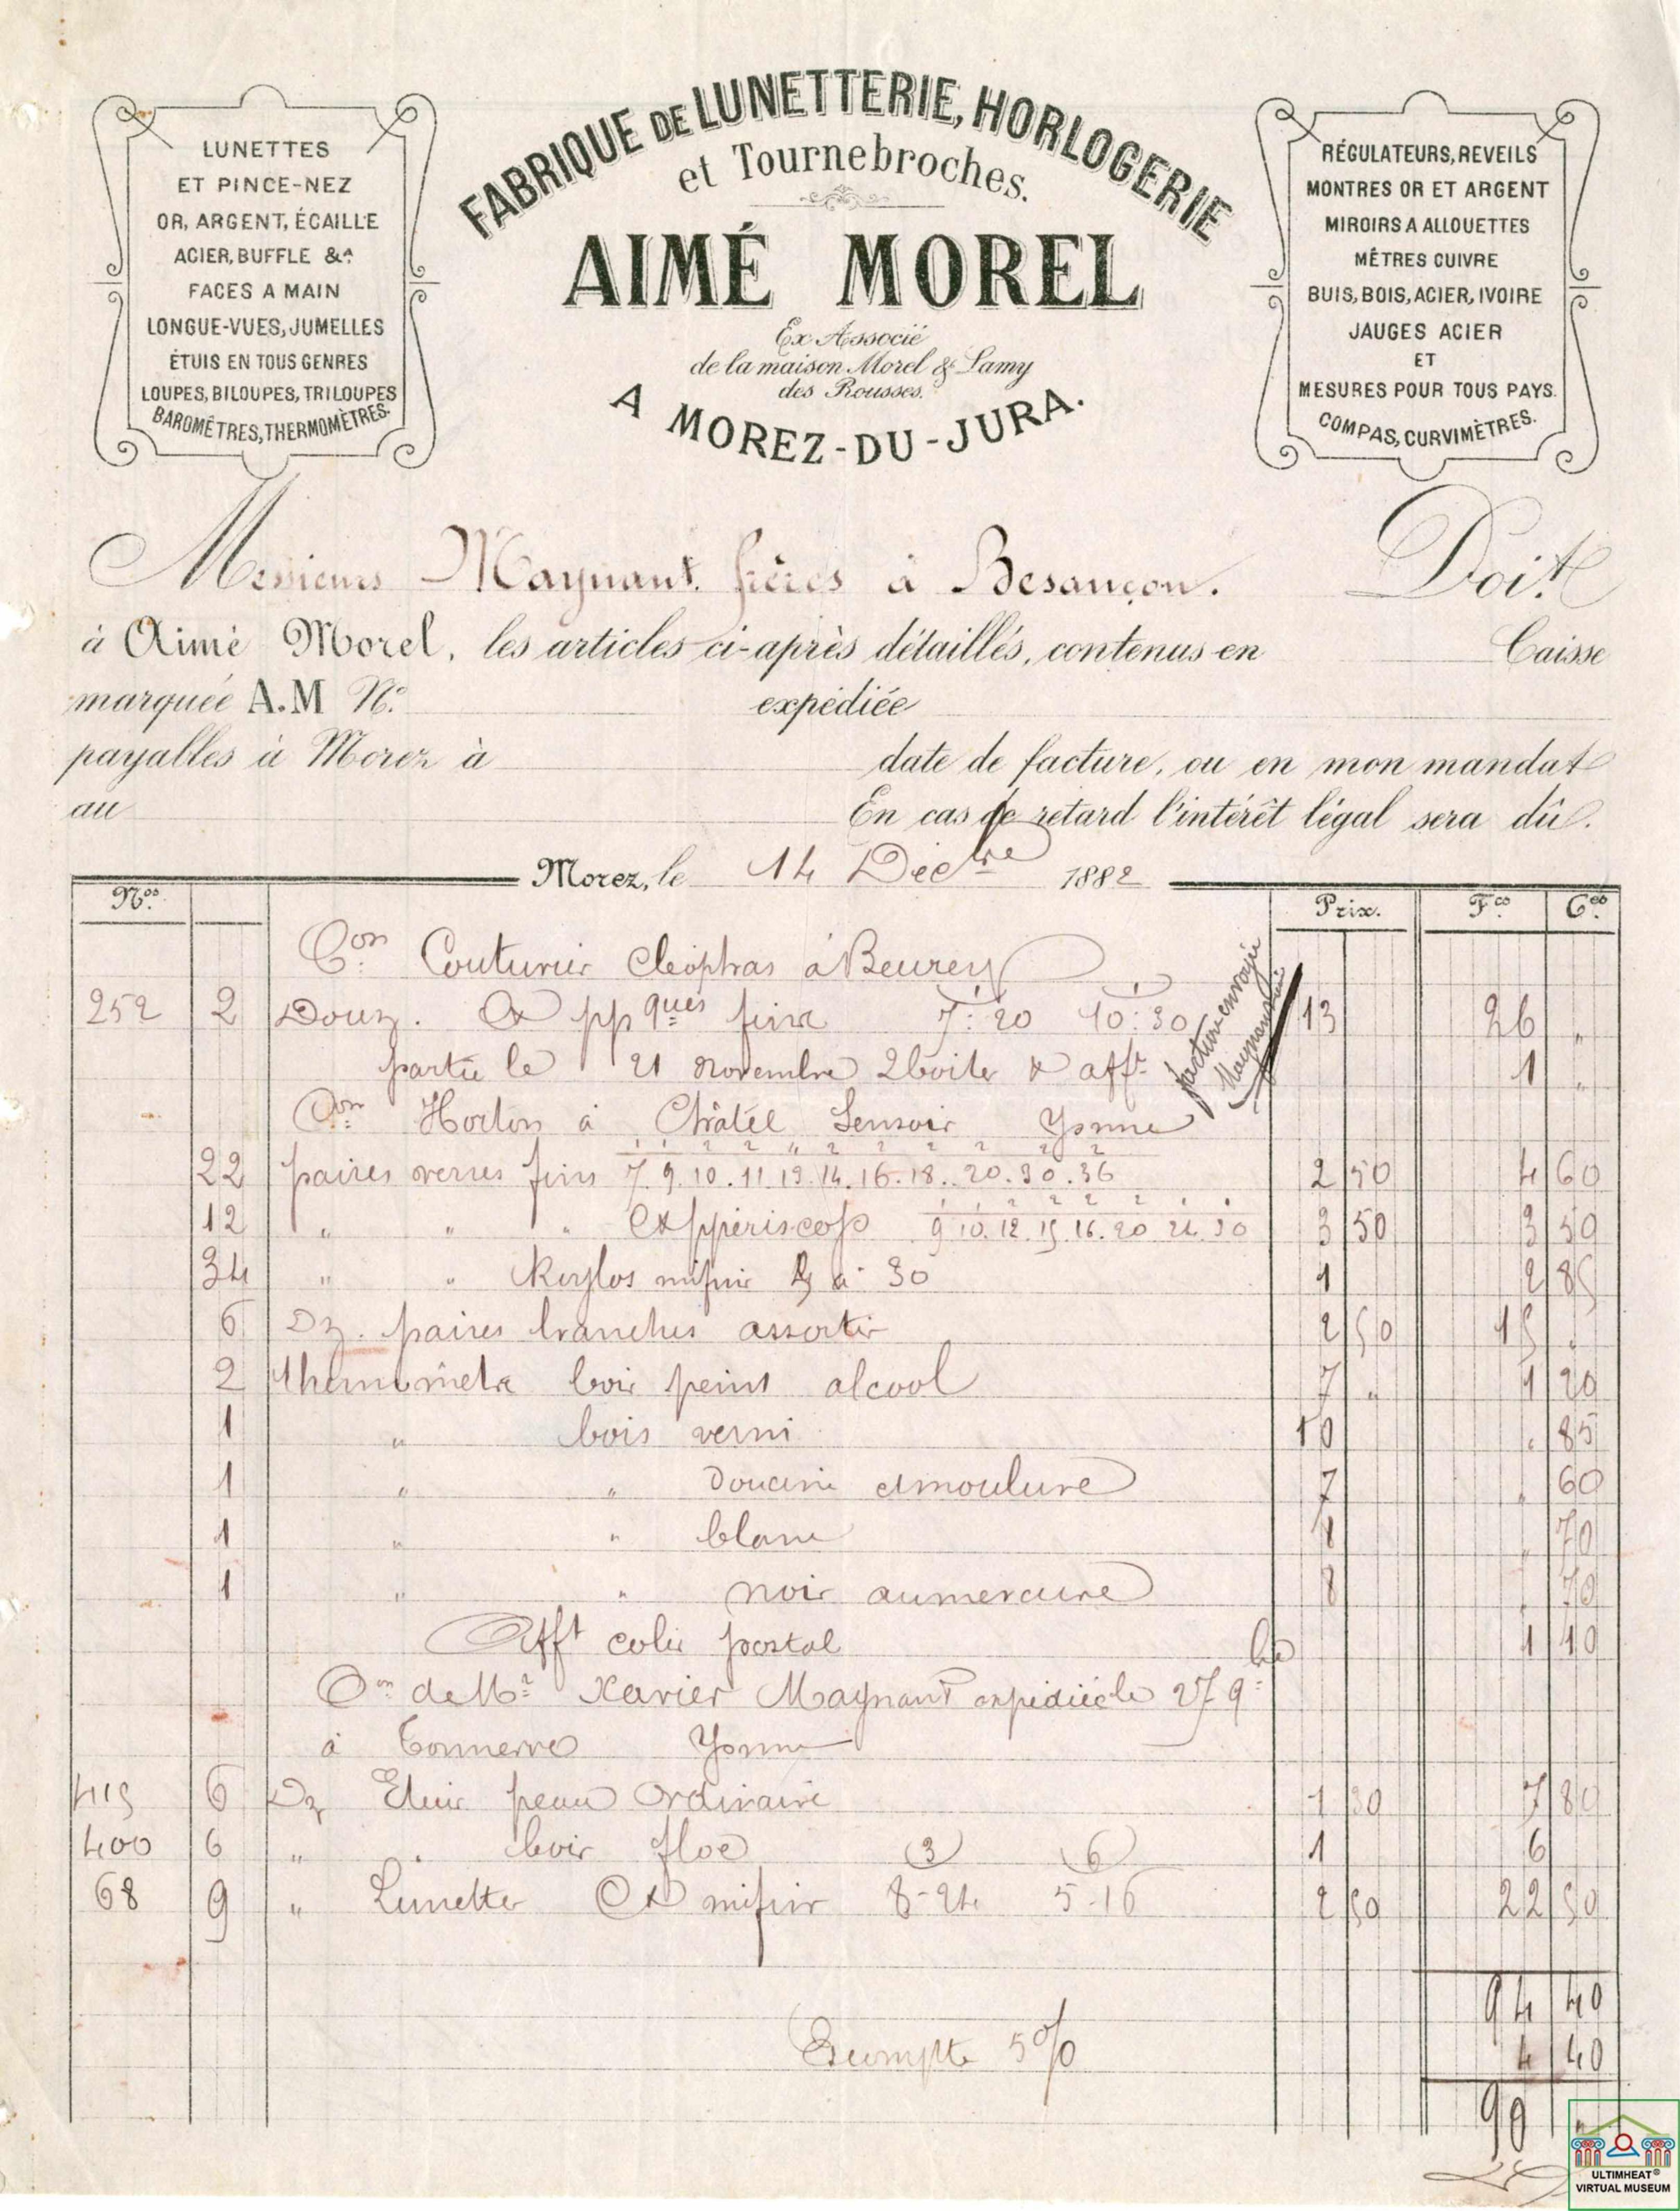 FABRIQUE DE LUNETTERIE, HORLOGERIE
et Tournebroches.
AIMÉ MOREL
Ex-Associé
de la maison Morel & Lamy
des Rousses.
A MOREZ-DU-JURA.
LUNETTES
ET PINCE-NEZ
OR, ARGENT, ÉCAILLE
ACIER, BUFFLE &ª
FACES A MAIN
LONGUE-VUES, JUMELLES
ÉTUIS EN TOUS GENRES
LOUPES, BILOUPES, TRILOUPES
BAROMÈTRES, THERMOMÈTRES.
RÉGULATEURS, REVEILS
MONTRES OR ET ARGENT
MIROIRS A ALLOUETTES
MÈTRES CUIVRE
BUIS, BOIS, ACIER, IVOIRE
JAUGES ACIER
ET
MESURES POUR TOUS PAYS.
COMPAS, CURVIMÈTRES.
Messieurs Maynant frères à Besançon. Doit
à Aimé Morel, les articles ci-après détaillés, contenus en Caisse
marquée A.M Nº expédiée
payables à Morez à date de facture, ou en mon mandat
au En cas de retard l'intérêt légal sera dû.
Morez, le 14 Décbre 1882
Nos Prix. Fcs Ces
Con Couturier Cléophas à Beurey
252 2 Douz. ppques fins 7:20 10:30 13 26 "
partie le 21 novembre 2 boites & afft 1 "
facture envoyée
Con Horton à Châtel Yonne
22 paires verres fins 7.9.10.11.13.14.16.18.20.30.36 2 50 4 60
12 " " " périscop 9 10.12.15.16.20 24.30 3 50 3 50
34 " " mifin à 30 1 2 85
6 Dz. paires branches assortir 2 50 15 "
2 thermomètre bois peint alcool 7 " 1 20
1 " bois verni 10 " 85
1 " " doucine et moulure 7 " 60
1 " " blanc 8 " 70
1 " " noir au mercure 8 " 70
Afft colis postal 1 10
Con de Mr Xavier Maynant expédiée le 27 9bre
à Tonnerre Yonne
415 6 Dz Etuis peau ordinaire 1 30 7 80
400 6 " " bois 3 6 1 6
68 9 " Lunettes mifin 8-24 5-16 2 50 22 50
94 40
Escompte 5% 4 40
90 "
ULTIMHEAT®
VIRTUAL MUSEUM